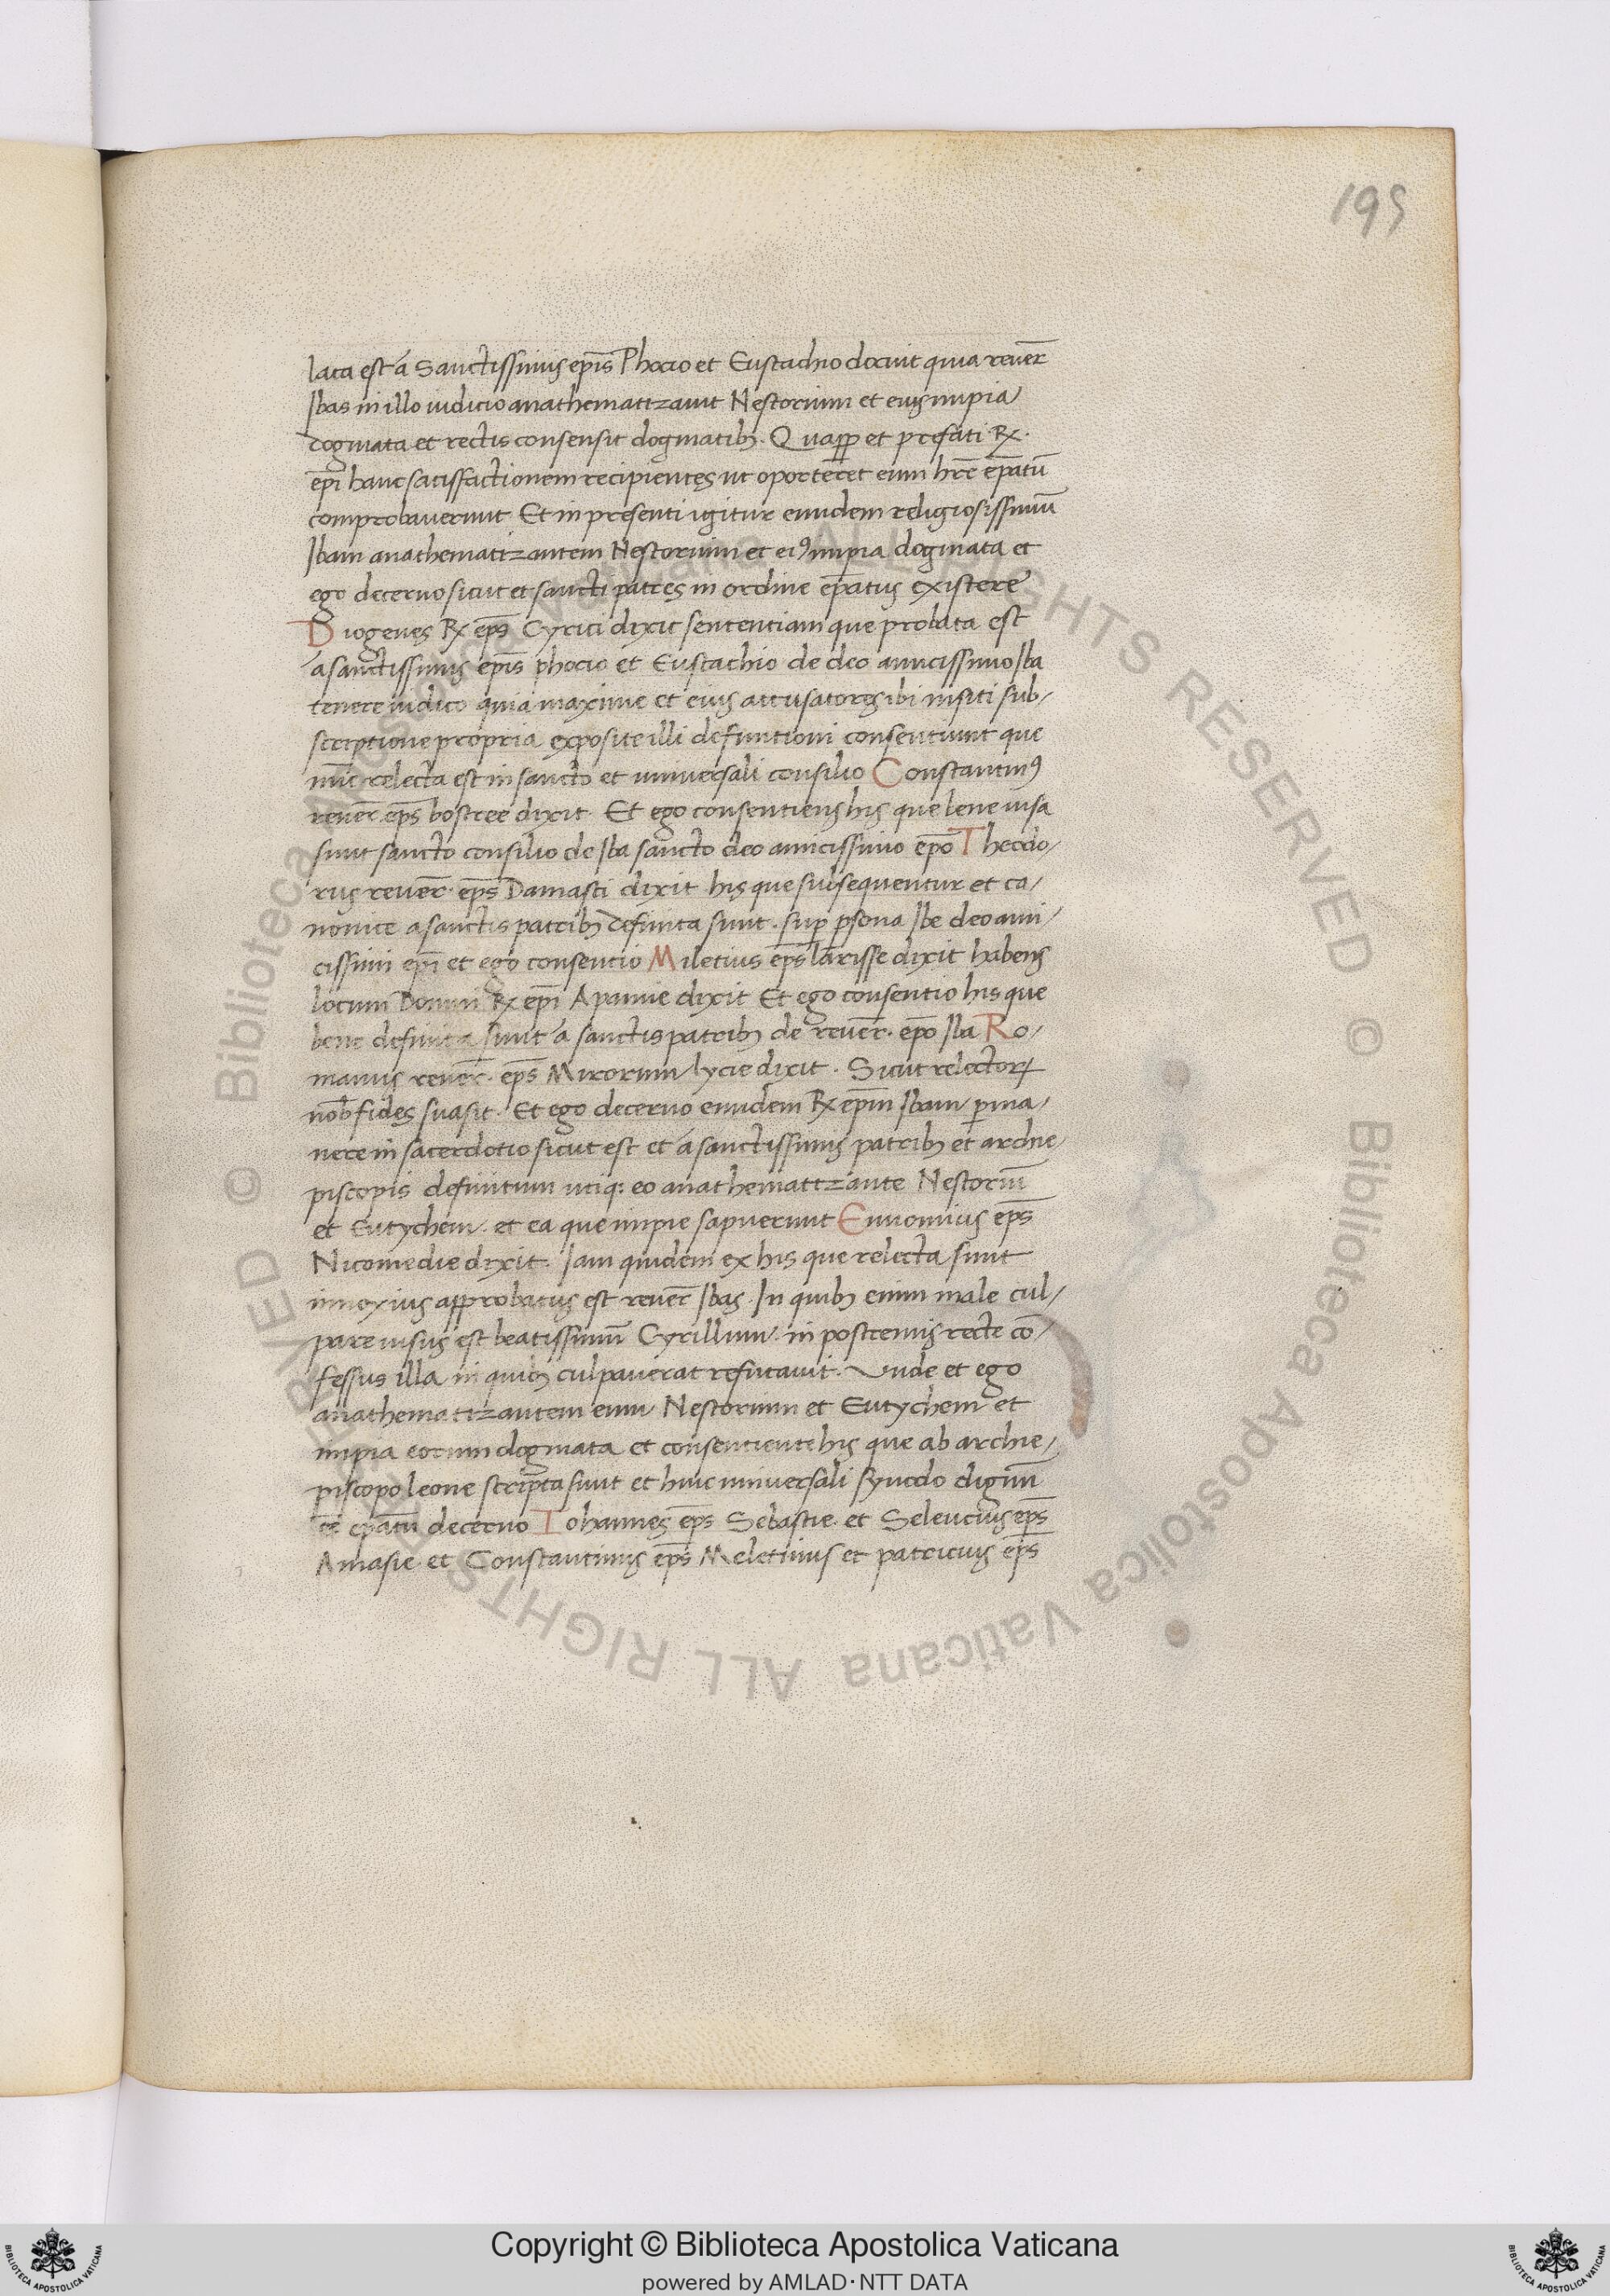 195
lata est á Sanctissimis ep̄is Phocio et Eustachio docuit quia reuer̄
Ibas in illo iudicio anathematizauit Nestorium et eius impia
dogmata et rectis consensit dogmatibꝫ. Quapp̱ et prefati Rx.
ep̄i hanc satisfactionem recipientes ut oporteret eum hr̄e ep̄atū
comprobauerunt Et in presenti igitur eundem religiosissimū
Ibam anathematizantem Nestorium et eiꝰ impia dogmata et
ego decerno sicut et sancti patres in ordine ep̄atus existere
Diogenes Rx ep̄s Cyzici dixit sententiam que probata est
á sanctissimis ep̄is phocio et Eustachio de deo amicissimo Iba
tenere iudico quia maxime et eius accusatores ibi insiti sub/
scriptione propria exposite illi definitioni consentiunt que
nūc relecta est in sancto et uniuersali consilio Constantinꝰ
reuer̄. ep̄s bostree dixit. Et ego consentiens his que bene uisa
sunt sancto consilio de Iba sancto deo amicissimo ep̄o Theodo/
rus reuer̄. ep̄s Damasci dixit his que subsequentur et ca/
nonice a sanctis patribꝫ definita sunt. sup̱ p̱sona Ibe deo ami/
cissimi ep̄i et ego consentio Miletius ep̄s larisse dixit habens
locum Domni Rx ep̄i Apamie dixit Et ego consentio his que
bene definita sunt á sanctis patribꝫ de reuer̄. ep̄o Iba Ro/
manus reuer̄. ep̄s Mirorum lycie dixit. Sicut relectoꝝ
nob̄ fides suasit. Et ego decerno eundem Rx ep̄m Ibam p̱ma/
nere in sacerdotio sicut est et á sanctissimis patribꝫ et archie/
piscopis definitum utiqꝫ eo anathematizante Nestoriū
et Eutychem. et ea que impie sapuerunt Eunomius ep̄s
Nicomedie dixit. Iam quidem ex his que relecta sunt
innoxius approbatus est reuer̄ Ibas. In quibꝫ enim male cul/
pare uisus est beatissimū Cyrillum. in postremis recte cō/
fessus illa in quibꝫ culpauerat refutauit. Unde et ego
anathematizantem eum Nestorium et Eutychem et
impia eorum dogmata et consentiente his que ab archie/
piscopo leone scripta sunt et huic uniuersali synodo dignū
ee᷎ ep̄atu decerno Iohannes ep̄s Sebastie. et Seleucius ep̄s
Amasie. et Constantinus ep̄s Meletinus et patricius ep̄s
© Biblioteca Apostolica Vaticana ALL RIGHTS RESERVED © Biblioteca Apostolica Vaticana ALL RIGHTS RESERVED
Copyright © Biblioteca Apostolica Vaticana
powered by AMLAD·NTT DATA
BIBLIOTECA APOSTOLICA VATICANA
BIBLIOTECA APOSTOLICA VATICANA